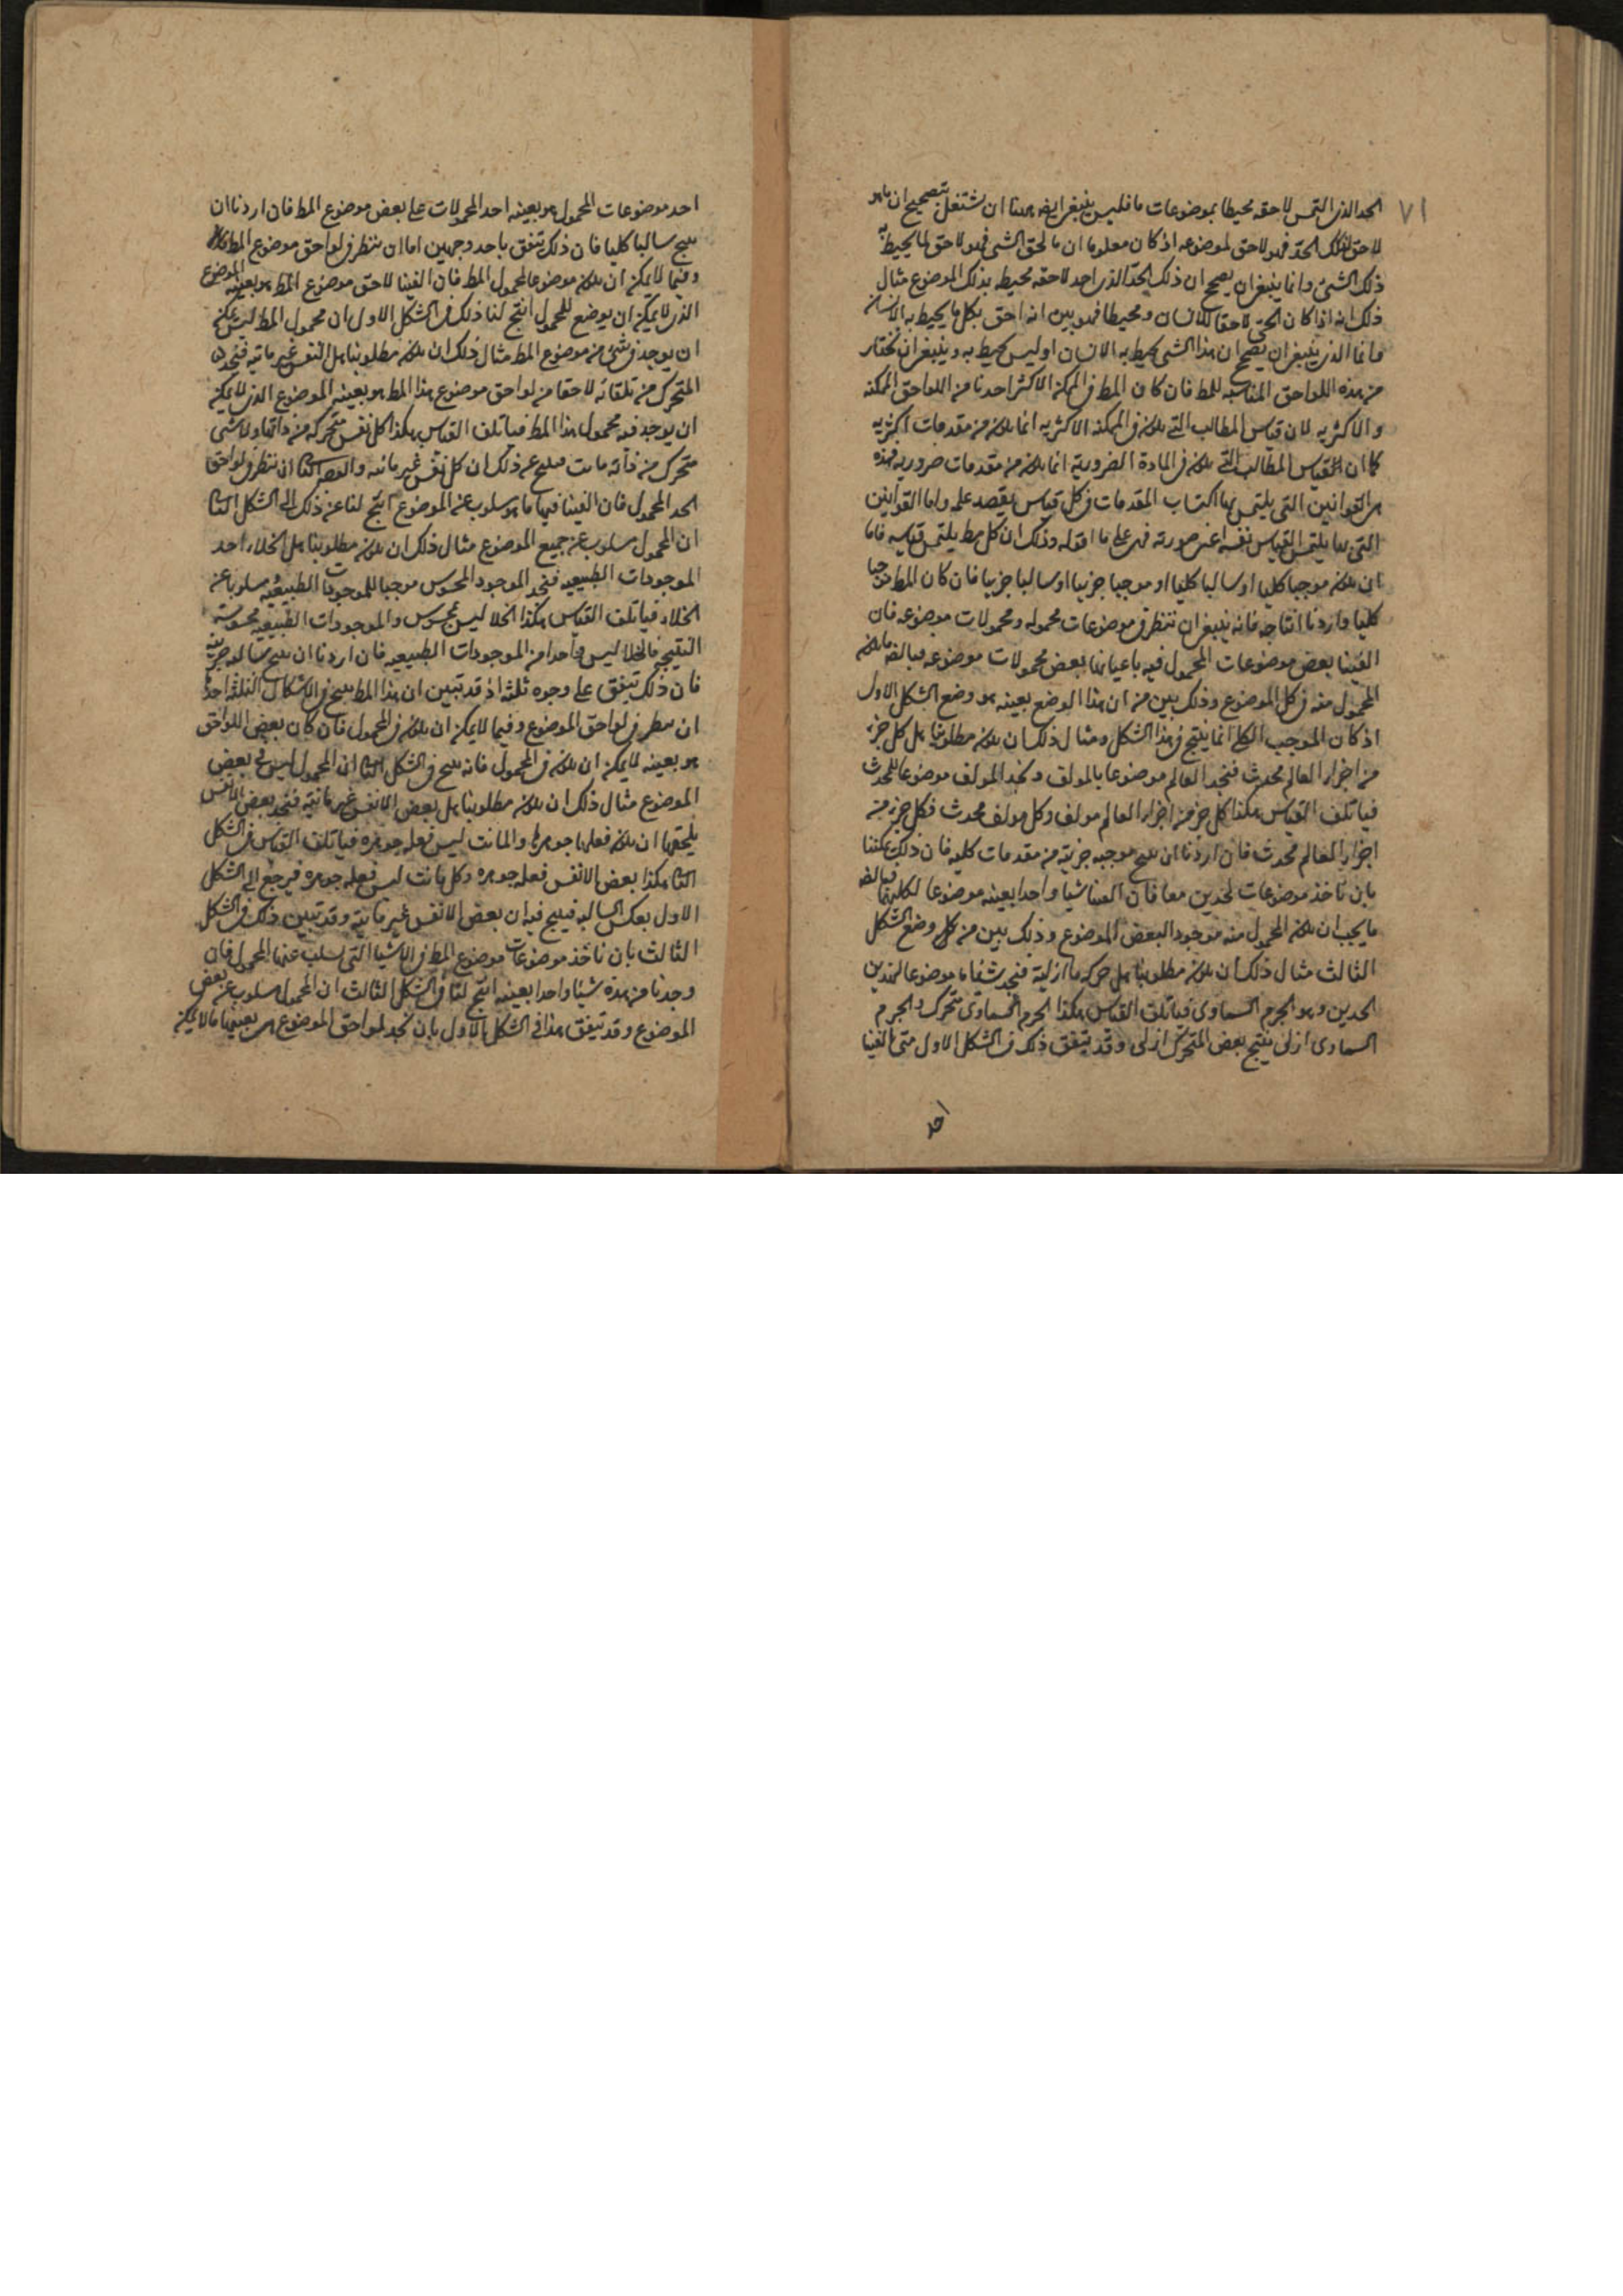 ٧١
الحد الذى التمس لاحقه محيطا بموضوعات ما فليس ينبغى ايضا هنا ان نشتغل بتصحيح ان ما هو
لاحق لذلك الحد فهو لاحق لموضوعه اذ كان معلوما ان ما لحق الشى فهو لاحق لما يحيط به
ذلك الشى وانما ينبغى ان يصحح ان ذلك الحد الذى احد لاحقه محيط بذلك الموضوع مثال
ذلك انه اذا كان الحى لاحقا للانسان ومحيطا فهو بين انه لاحق بكل ما يحيط به الانسان
وانما الذى ينبغى ان يصحح ان هذا الشى يحيط به الانسان او ليس يحيط به وينبغى ان نختار
من هذه اللواحق المناسبه للمط فان كان المط فى الممكن الاكثر اخذنا من اللواحق الممكنه
والاكثريه لان قياس المطالب التى تكون فى الممكنه الاكثريه انما تكون من مقدمات اكثريه
كما ان القياس المطالب التى تكون فى المادة الضرورية انما تكون من مقدمات ضروريه فهذه
هى القوانين التى يلتمس بها اكتساب المقدمات فى كل قياس يقصد عمله واما القوانين
التى بها يلتمس القياس نفسه اعنى صورته فهى على ما اقوله وذلك ان كل مط يلتمس قياسه فاما
ان يكون موجبا كليا او سالبا كليا او موجبا جزييا او سالبا جزييا فان كان المط موجبا
كليا واردنا انتاجه فانه ينبغى ان ننظر فى موضوعات محموله ومحمولات موضوعه فان
الفينا بعض موضوعات المحمول فيه باعيانها بعض محمولات موضوعه فبالضـ ما يكون
المحمول منه فى كل الموضوع وذلك بين من ان هذا الوضع بعينه هو وضع الشكل الاول
اذ كان الموجب الكلى انما ينتج فى هذا الشكل ومثال ذلك ان يكون مطلوبنا هل كل جزء
من اجزاء العالم محدث فنجد العالم موضوعا بالمولف ونجد المولف موضوعا للمحدث
فياتلف القياس هكذا كل جزء من اجزاء العالم مولف وكل مولف محدث فكل جزء من
اجزاء العالم محدث فان اردنا ان ننتج موجبه جزئية من مقدمات كليه فان ذلك يمكننا
بان ناخذ موضوعات الحدين معا فان الفينا شيا واحدا بعينه موضوعا لكليهما فبالضـ
ما يجب ان يكون المحمول منه موجودا لبعض الموضوع وذلك بين من وضع الشكل
الثالث مثال ذلك ان يكون مطلوبنا هل حركه ما ازلية فنجد شيئا ما موضوعا لهذين
الحدين وهو الجرم السماوى فياتلف القياس هكذا الجرم السماوى متحرك والجرم
السماوى ازلى ينتج بعض المتحرك ازلى وقد يتفق ذلك فى الشكل الاول متى الفينا
احد
احد موضوعات المحمول هو بعينه احد المحمولات على بعض موضوع المط فان اردنا ان
ننتج سالبا كليا فان ذلك يتفق باحد وجهين اما ان ننظر فى لواحق موضوع المط
وفيما لا يمكن ان يكون موضوعا لمحمول المط فان الفينا لاحق موضوع المط هو بعينه الموضوع
الذى لا يمكن ان يوضع للمحمول انتج لنا ذلك فى الشكل الاول ان محمول المط ليس يمكن
ان يوجد فى شى من موضوع المط مثال ذلك ان يكون مطلوبنا هل النفس غير مايته فنجد
المتحرك من تلقائه لاحقا من لواحق موضوع هذا المط هو بعينه الموضوع الذى لا يمكن
ان يوجد فيه محمول هذا المط فياتلف القياس هكذا كل نفس متحركه من ذاتها ولا شى
متحرك من ذاته مايت فينتج عن ذلك ان كل نفس غير مائته والوجه الثانى ان ننظر فى لواحق
الحد المحمول فان الفينا فيها ما هو مسلوب عن الموضوع انتج لنا عن ذلك فى الشكل الثانى
ان المحمول مسلوب عن جميع الموضوع مثال ذلك ان يكون مطلوبنا هل الخلاء احد
الموجودات الطبيعيه فنجد الموجود المحسوس موجبا للموجودات الطبيعيه مسلوبا عن
الخلاء فياتلف القياس هكذا الخلا ليس بمحسوس والموجودات الطبيعيه محسوسة
النتيجه فالخلا ليس واحدا من الموجودات الطبيعيه فان اردنا ان ننتج سالبه جزئية
فان ذلك يتفق على وجوه ثلثه اذ قد تبين ان هذا المط ينتج فى الاشكال الثلثه احدها
ان ننظر فى لواحق الموضوع وفيما لا يمكن ان يكون فى المحمول فان كان بعض اللواحق
هو بعينه لا يمكن ان يكون فى المحمول فانه ينتج فى الشكل الثانى ان المحمول ليس فى بعض
الموضوع مثال ذلك ان يكون مطلوبنا هل بعض الانفس غير مائتة فنجد بعض الانفس
يلحقها ان يكون فعلها جوهرها والمائت ليس فعله جوهره فياتلف القياس فى الشكل
الثانى هكذا بعض الانفس فعله جوهره وكل مائت ليس فعله جوهره فيرجع الى الشكل
الاول بعكس السالبه فينتج فيه ان بعض الانفس غير مائتة وقد تبين ذلك فى الشكل
الثالث بان ناخذ موضوعات موضوع المط فى الاشيا التى يسلب عنها المحمول فان
وجدنا من هذه شيئا واحدا بعينه انتج لنا فى الشكل الثالث ان المحمول مسلوب عن بعض
الموضوع وقد يتفق هذا فى الشكل الاول بان نجد لواحق الموضوع هى بعينها ما لا يمكن